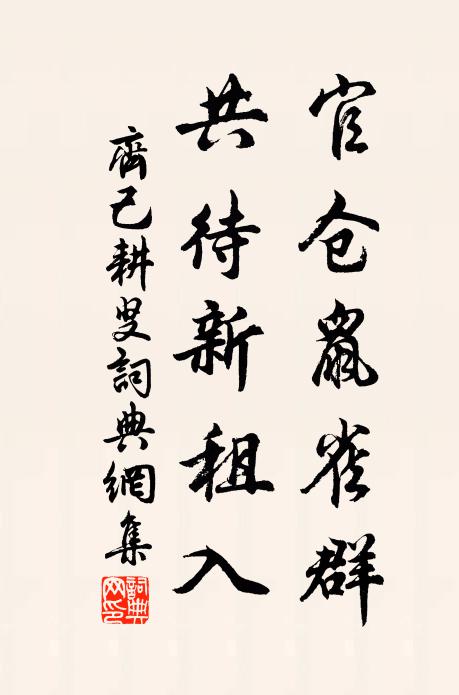 官仓鼠雀群
共待新租入
齊己耕叟詞典網集
詞典网印